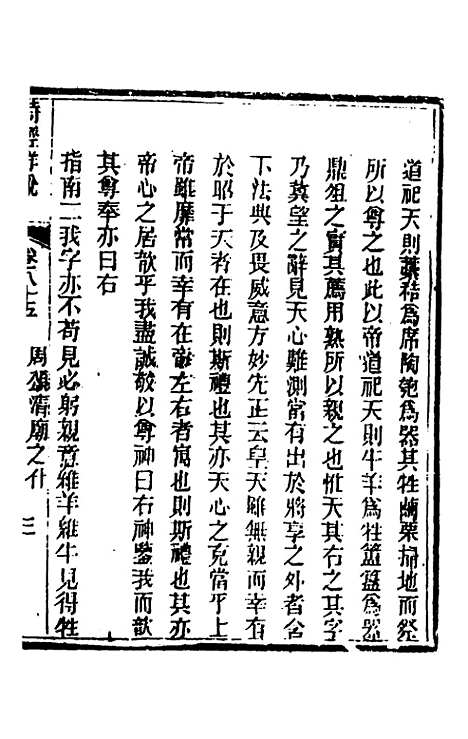 道祀天則藁秸爲席陶匏爲器其牲繭栗掃地而祭
所以尊之也此以帝道祀天則牛羊爲牲簠簋爲器
鼎俎之實其薦用熟所以親之也惟天其右之其字
乃冀望之辭見天心難測當有出於將享之外者含
下法典及畏威意方妙先正云皇天雖無親而幸有
於昭于天者在也則斯禮也其亦天心之克當乎上
帝雖靡常而幸有在帝左右者寓也則斯禮也其亦
帝心之居歆乎我盡誠敬以尊神曰右神鑒我而歆
其尊奉亦曰右
指南二我字亦不苟見必躬親意維羊維牛見得牲
詩經詳說 卷八十五 周頌清廟之什 三